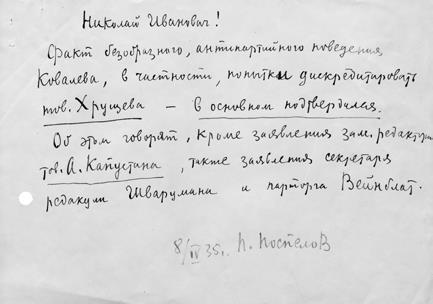 Николай Иванович!
Факт безобразного, антипартийного поведения
Ковалева, в частности, попытки дискредитировать
тов. Хрущева – в основном подтвердился.
Об этом говорят, кроме заявления зам. редактора
тов. А. Капустана, также заявления секретаря
редакции Шварумана и парторга Вейнблат.
8/IV 35г. П. Поспелов